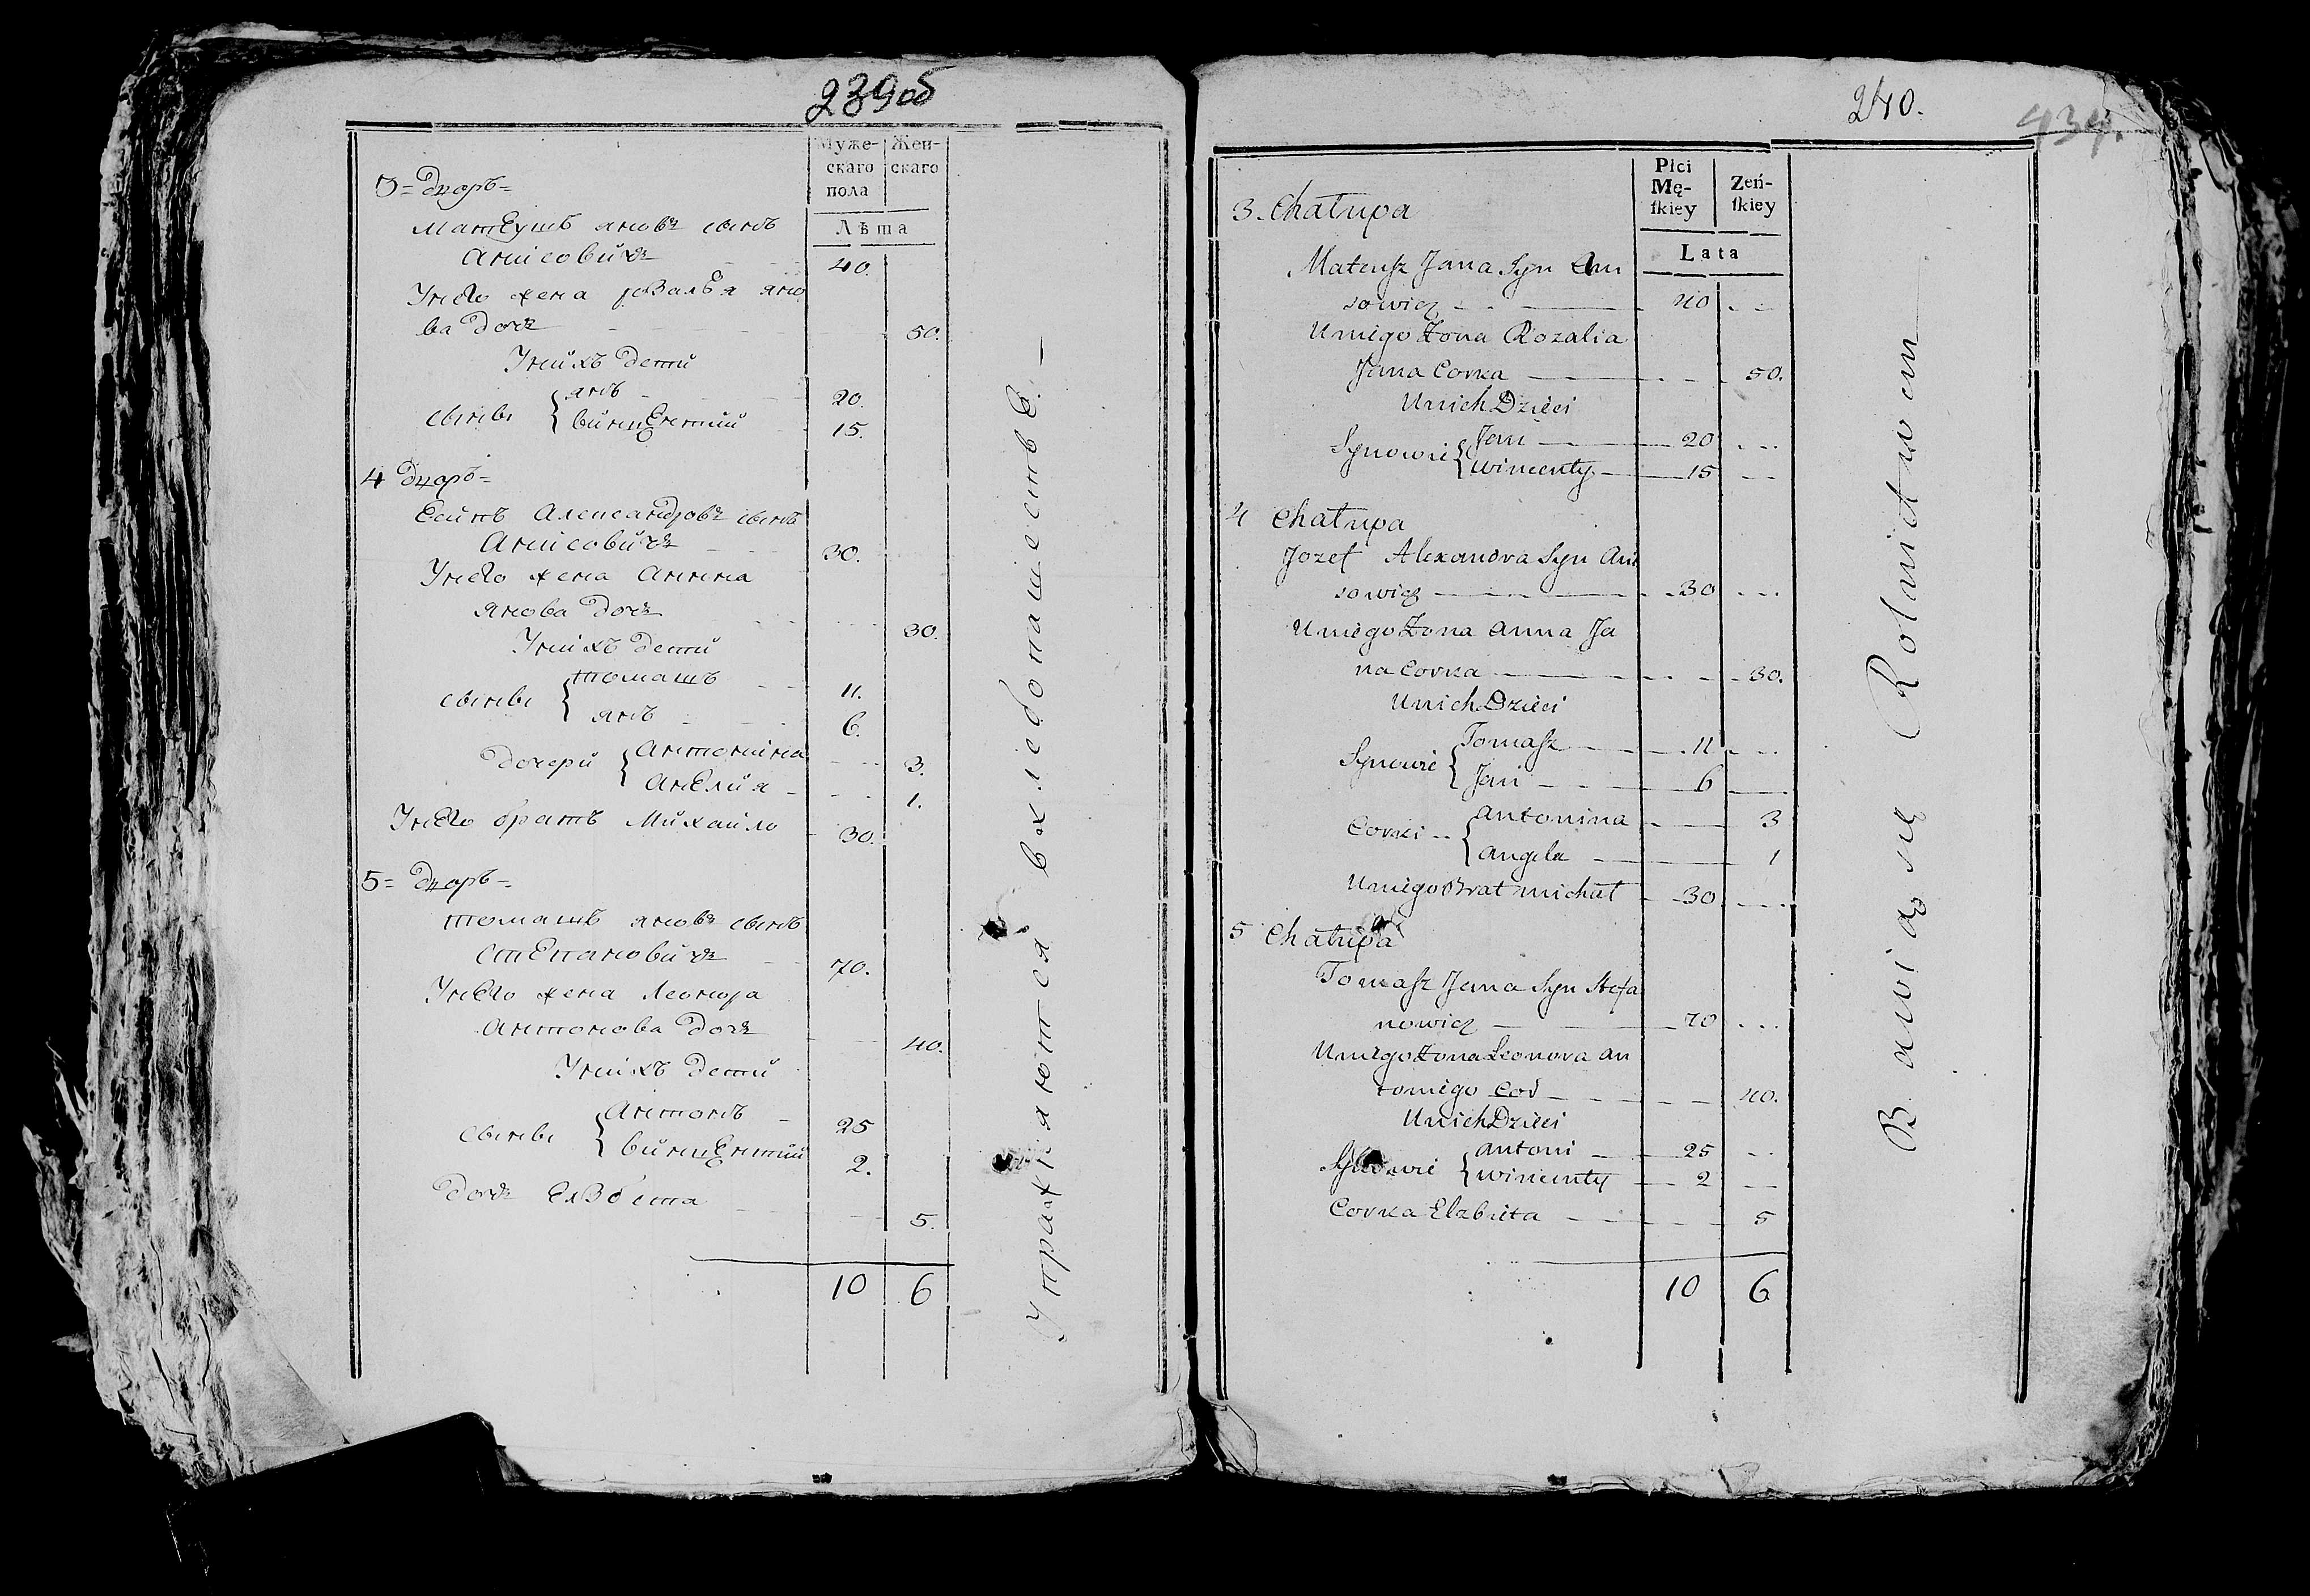 239 об
Муже-
скаго
пола
Жен-
скаго
Лѣта
3 = Дворъ =
Матеушъ яновъ сынъ
Анисовичъ 40.
Унего жена розалѣя яно
ва дочь 50.
Унихъ дети
сыновья { янъ 20.
винцентий 15.
4 Дворъ =
Есипъ Александровъ сынъ
Анисовичъ 30.
Унего жена Анна
янова дочь 30.
Унихъ дети
сыновья { томашъ 11.
янъ 6.
дочери { Антонина 3.
Анелия 1.
Унего братъ Михайло 30.
5 = Дворъ =
томашъ яновъ сынъ
Степановичъ 70.
Унего жена Леонора
антонова дочь 40.
Унихъ дети
{ Антонъ 25
винцентий 2.
дочь Елзбета 5.
10 6
Упражняются вхлебопашестве. —
240.
434.
Płci
Mę-
ſkiey
Zeń-
ſkiey
Lata
3. Chałupa
Mateusz Jana Syn Ani
sowicz 40
Uniego Zona Rozalia
Jana Corka 50.
Unich Dzieci
Synowie { Jan 20
Wincenty 15
4 Chałupa
Jozef Alexandra Syn Ani
sowicz 30
Uniego Zona Anna Ja
na Corka 30.
Unich Dzieci
Synowie { Tomasz 11
Jan 6
Corki { Antonina 3
Angela 1
Uniego Brat Michał 30
5 Chałupa
Tomasz Jana Syn Stefa
nowicz 70
Uniego Zona Leonora An
toniego Cor 40.
Unich Dzieci
Synowie { Antoni 25
Wincenty 2
Corka Elzbieta 5
10 6
Bawią się Rolnictwem